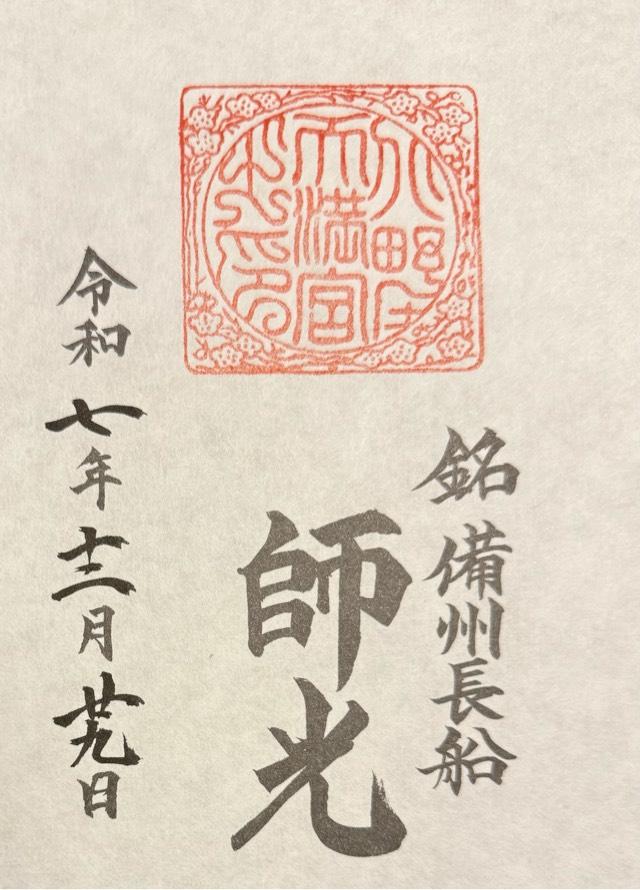 天満宮
銘 備州長船
師光
令和七年十二月廿九日